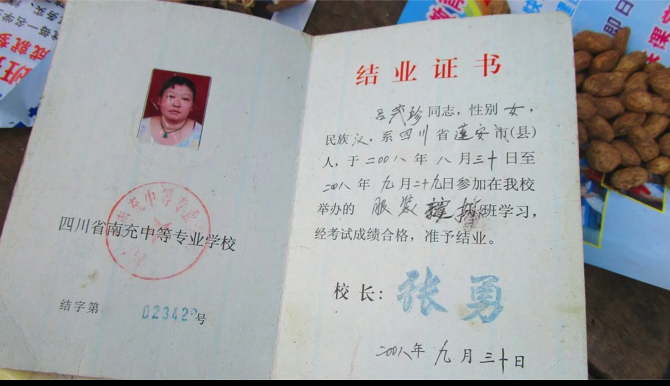 四川省南充中等专业学校
结字第 023429 号
结业证书
吕武珍同志,性别女,
民族汉,系四川省蓬安市(县)
人,于二00八年八月三十日至
二00八年九月二十九日参加在我校
举办的服装班学习,
经考试成绩合格,准予结业。
校长:张勇
二00八年九月三十日